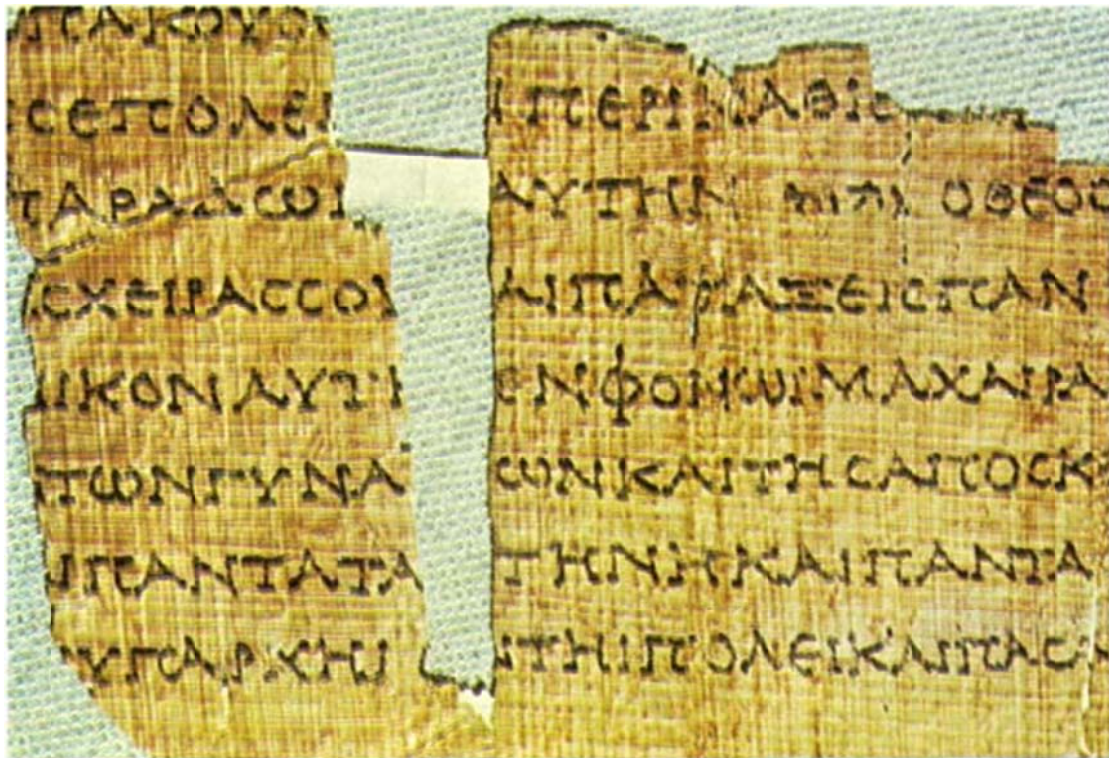 ΠΑΚΟΥϹ
ϹΕΠΟΛΕ ΙΠΕΡΙΚΑΘΙΕ
ΠΑΡΑΔΩΙ ΑΥΤΗΝ יהוה ΟΘΕΟϹ
ϹΧΕΙΡΑϹϹΟΥ ΑΙΠΑΤΑΞΕΙϹΠΑΝ
ΙΚΟΝΑΥΤΗ ΕΝΦΟΝΩΙΜΑΧΑΙΡΑ
ΤΩΝΓΥΝΑ ΚΩΝΚΑΙΤΗϹΑΠΟϹΚ
ΙΠΑΝΤΑΤΑ ΤΗΝΗΚΑΙΠΑΝΤΑ
ΥΠΑΡΧΗΙ ΝΤΗΙΠΟΛΕΙΚΑΙΠΑϹΑ